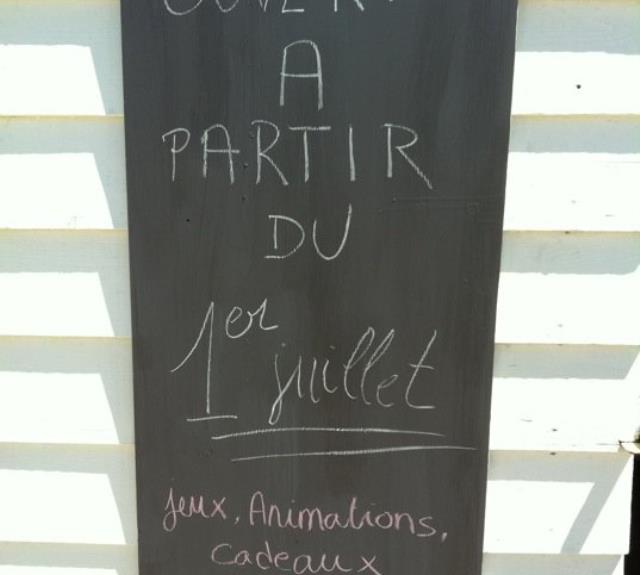 OUVERT
A
PARTIR
DU
1er juillet
jeux, Animations,
cadeaux